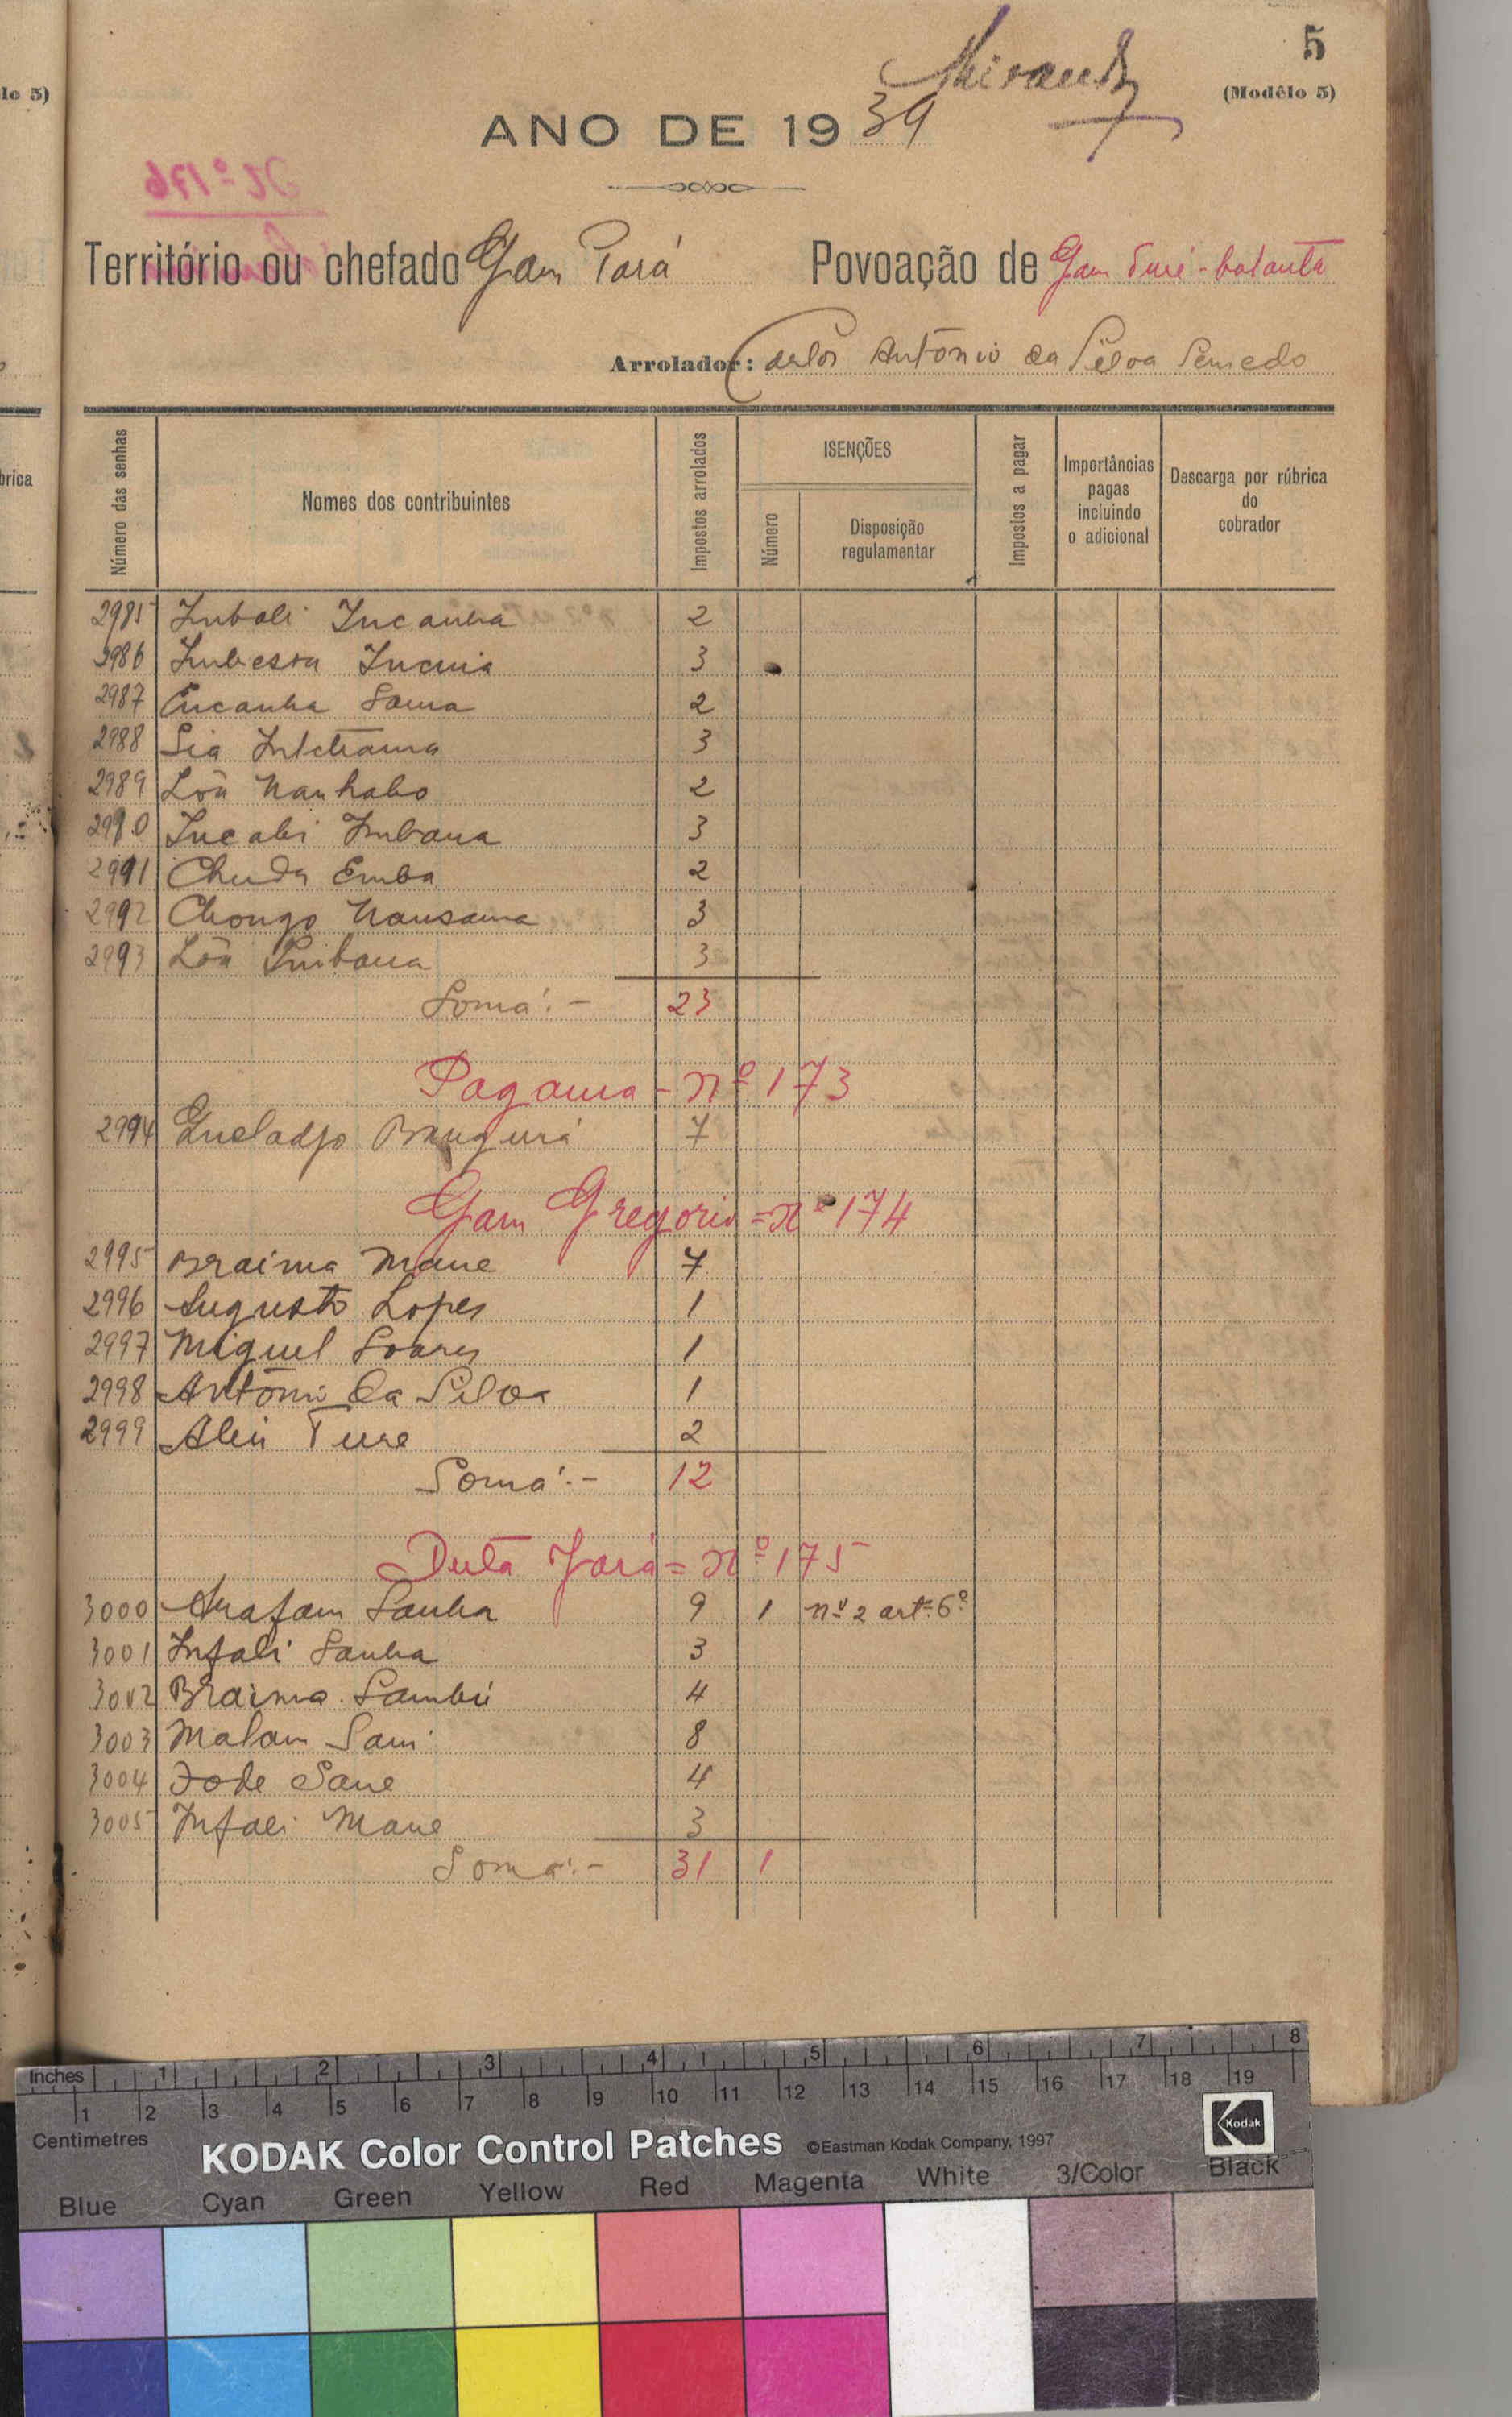 5
(Modêlo 5)
Miranda
ANO DE 1939
Nº 176
Território ou chefado Gam Pará Povoação de Gam Turé-balanta
Arrolador: Carlos António da Silva Semedo
Número das senhas
Nomes dos contribuintes
Impostos arrolados
ISENÇÕES
Número
Disposição regulamentar
Impostos a pagar
Importâncias pagas incluindo o adicional
Descarga por rúbrica do cobrador
2985 Imbali Incanha 2
2986 3
2987 Encanha Sama 2
2988 Sia 3
2989 Lôn Nanhabo 2
2990 Incabi Imbana 3
2991 Chuda Emba 2
2992 Chongo Nansama 3
2993 Lôn Imbana 3
Soma:- 23
Pagama - nº 173
2994 Gueladjo Bangurá 7
Gam Gregorio = nº 174
2995 Braima Mane 7
2996 Augusto Lopes 1
2997 Miguel Soares 1
2998 António da Silva 1
2999 Aliu Ture 2
Soma:- 12
Dutá Jará = nº 175
3000 Arafam Sanha 9 1 nº 2 artº 6º
3001 Infali Sanha 3
3002 Braima Sambú 4
3003 Malam Sani 8
3004 Fode Sane 4
3005 Infali Mane 3
Soma:- 31 1
Inches 1 2 3 4 5 6 7 8
1 2 3 4 5 6 7 8 9 10 11 12 13 14 15 16 17 18 19
Centimetres
KODAK Color Control Patches ©Eastman Kodak Company, 1997
Kodak
Blue Cyan Green Yellow Red Magenta White 3/Color Black